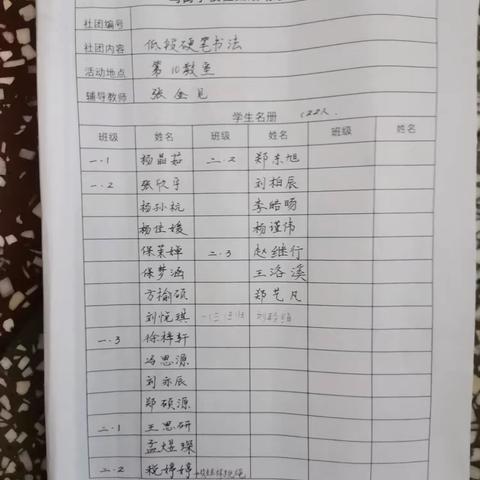 社团编号
社团内容 低段硬笔书法
活动地点 第10教室
辅导教师 张全见
学生名册 (22人)
班级 姓名 班级 姓名 班级 姓名
一.1 杨晶茹 二.2 郑东旭
一.2 张欣宇 刘柏辰
杨孙杭 李皓旸
杨仕媛 杨谨伟
保茉婵 二.3 赵继行
保梦涵 王洛溪
方榆硕 郑艺凡
刘悦琪
一.3 徐梓轩
冯思源
刘亦辰
郑硕源
二.1 王思研
孟煜琛
二.2 税婷婷